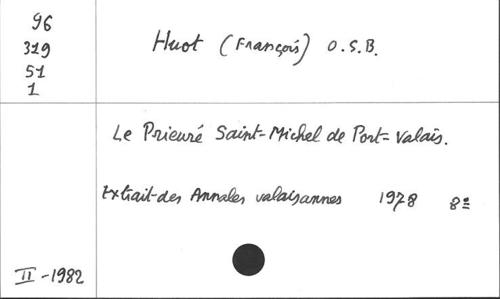 96
319
51
1
Huot (François) O.S.B.
Le Prieuré Saint-Michel de Port-Valais.
Extrait des Annales valaisannes 1978 8º
II-1982